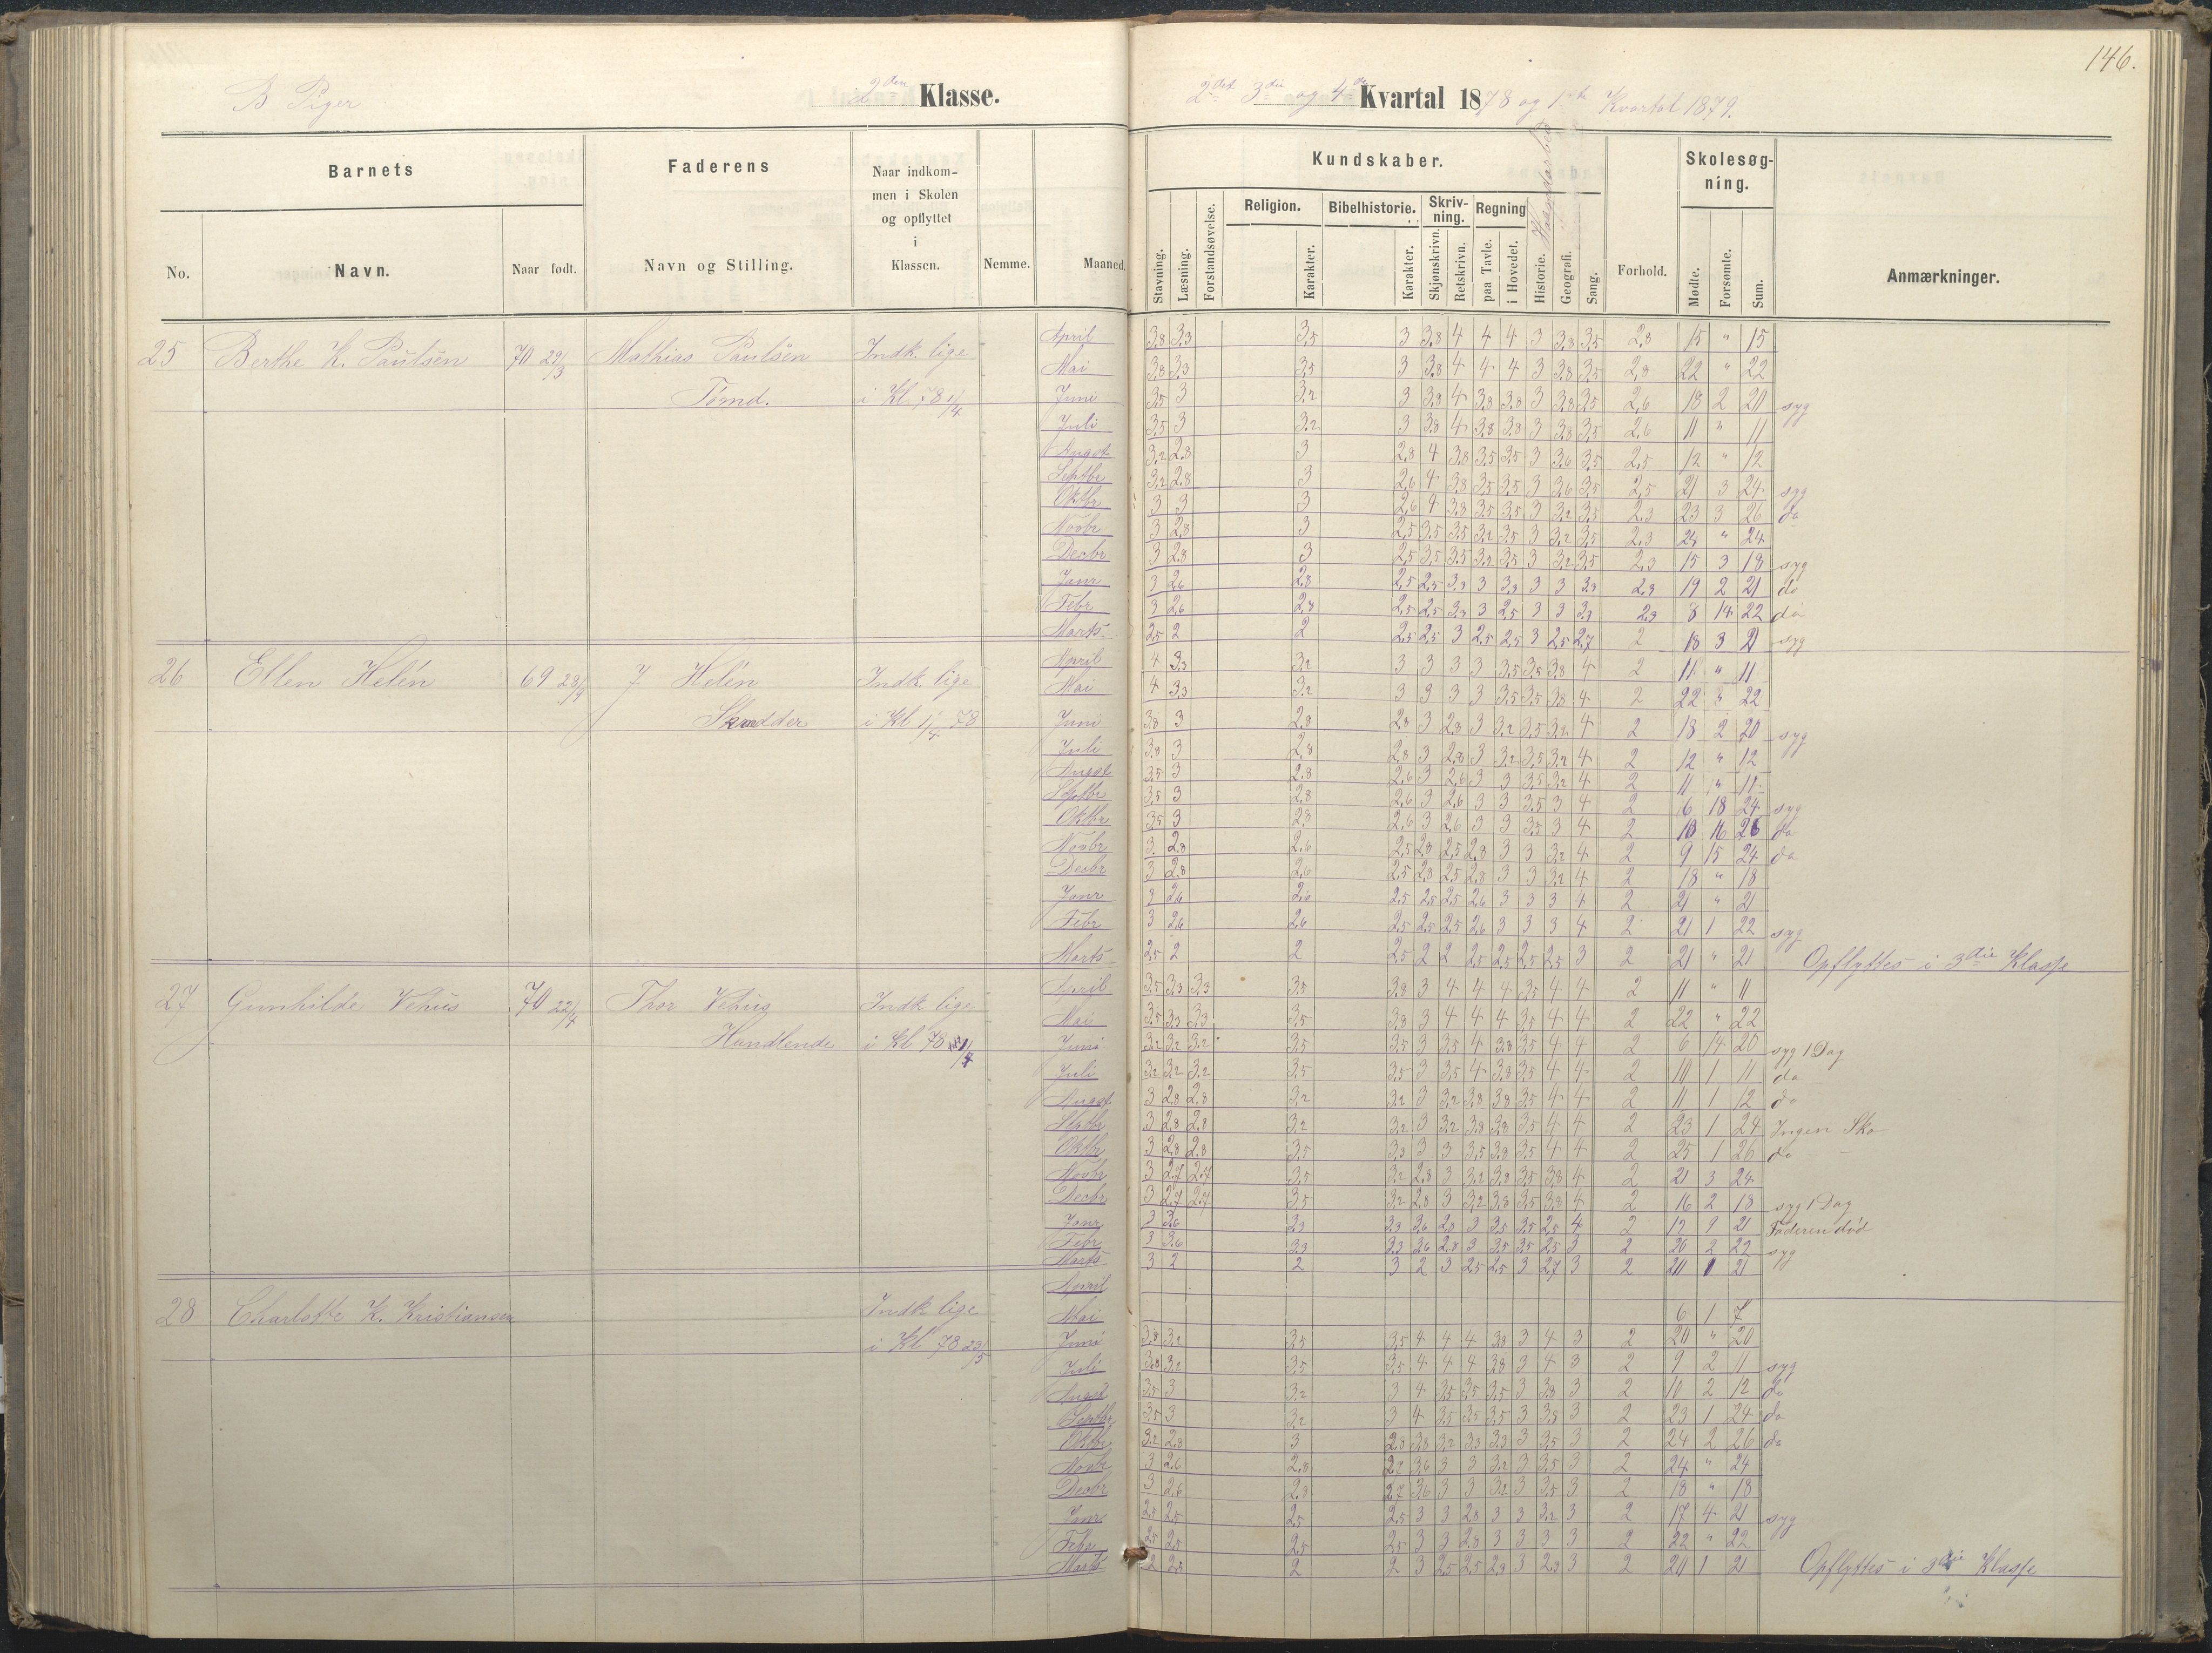 146.
B Piger
2den Klasse.
2det 3die og 4de Kvartal 1878 og 1ste Kvartal 1879.
Barnets
Faderens
Naar indkom-
men i Skolen
og opflyttet
i
Klassen.
Nemme.
Maaned.
No.
Navn.
Naar født.
Navn og Stilling.
Kundskaber.
Skolesøg-
ning.
Stavning.
Læsning.
Forstandsøvelse.
Religion.
Karakter.
Bibelhistorie.
Karakter.
Skriv-
ning.
Skjønskrivn.
Retskrivn.
Regning
paa Tavle.
i Hovedet.
Historie.
Geografi.
Sang.
Forhold.
Mødte.
Forsømte.
Sum.
Anmærkninger.
25 Berthe K. Paulsen 70 29/3 Mathias Paulsen Indk. lige
Tømd. i Kl. 78 1/4
April 3,8 3,3 3,5 3 3,8 4 4 4 3 3,8 3,5 2,8 15 " 15
Mai 3,8 3,3 3,5 3 3,8 4 4 4 3 3,8 3,5 2,8 22 " 22
Juni 3,5 3 3,2 3 3,8 4 3,8 3,8 3 3,8 3,5 2,6 18 2 20 syg
Juli 3,5 3 3,2 3 3,8 4 3,8 3,8 3 3,8 3,5 2,6 11 " 11
Augst 3,2 2,8 3 2,8 4 3,8 3,5 3,5 3 3,6 3,5 2,5 12 " 12
Septbr 3,2 2,8 3 2,6 4 3,8 3,5 3,5 3 3,6 3,5 2,5 21 3 24 syg
Oktbr 3 3 3 2,6 4 3,3 3,5 3,5 3 3,2 3,5 2,3 23 3 26 do
Novbr 3 2,8 3 2,5 3,5 3,5 3,2 3,5 3 3,2 3,5 2,3 24 " 24
Decbr 3 2,8 3 2,5 3,5 3,5 3,2 3,5 3 3,2 3,5 2,3 15 3 18 syg
Janr 3 2,6 2,8 2,5 2,5 3,3 3 3,3 3 3 3,3 2,3 19 2 21 do
Febr 3 2,6 2,8 2,5 2,5 3,3 3 2,5 3 3 3,3 2,3 8 14 22 do
Marts 2,5 2 2 2,5 2,5 3 2,5 2,5 3 2,5 2,7 2 18 3 21 syg
26 Ellen Helén 69 28/9 J Helén Indk. lige
Skrædder i Kl 1/4 78
April 4 3,3 3,2 3 3 3 3 3,5 3,5 3,8 4 2 11 " 11
Mai 4 3,3 3,2 3 3 3 3 3,5 3,5 3,8 4 2 22 " 22
Juni 3,8 3 2,8 2,8 3 2,8 3 3,2 3,5 3,2 4 2 18 2 20 syg
Juli 3,8 3 2,8 2,8 3 2,8 3 3,2 3,5 3,2 4 2 12 " 12
Augst 3,5 3 2,8 2,6 3 2,6 3 3 3,5 3,2 4 2 11 " 11
Septbr 3,5 3 2,8 2,6 3 2,6 3 3 3,5 3 4 2 6 18 24 syg
Oktbr 3,5 3 2,8 2,6 3 2,6 3 3 3,5 3 4 2 10 16 26 do
Novbr 3 2,8 2,6 2,5 2,8 2,5 2,8 3 3 3,2 4 2 9 15 24 do
Decbr 3 2,8 2,6 2,5 2,8 2,5 2,8 3 3 3,2 4 2 18 " 18
Janr 3 2,6 2,6 2,5 2,5 2,5 2,6 3 3 3 4 2 21 " 21
Febr 3 2,6 2,6 2,5 2,5 2,5 2,6 3 3 3 4 2 21 1 22 syg
Marts 2,5 2 2 2,5 2 2 2,5 2,5 2,5 2,5 3 2 21 " 21 Opflyttes i 3die Klasse
27 Gunhilde Vehus 70 22/4 Thor Vehus Indk. lige
Handlende i Kl 78 1/4
April 3,5 3,3 3,3 3,5 3,8 3 4 4 4 3,5 4 4 2 11 " 11
Mai 3,5 3,3 3,3 3,5 3,8 3 4 4 4 3,5 4 4 2 22 " 22
Juni 3,2 3,2 3,2 3,5 3,5 3 3,5 4 3,8 3,5 4 4 2 6 14 20 syg 1 Dag
Juli 3,2 3,2 3,2 3,5 3,5 3 3,5 4 3,8 3,5 4 4 2 10 1 11 do
Augst 3 2,8 2,8 3,2 3,2 3 3,2 3,8 3,8 3,5 4 4 2 11 1 12 do
Septbr 3 2,8 2,8 3,2 3,2 3 3,2 3,8 3,8 3,5 4 4 2 23 1 24 Ingen Sko
Oktbr 3 2,8 2,8 3,5 3,3 3 3 3,5 3,8 3,5 4 4 2 25 1 26 do
Novbr 3 2,7 2,7 3,5 3,2 2,8 3 3,2 3,8 3,5 3,8 4 2 21 3 24
Decbr 3 2,7 2,7 3,5 3,2 2,8 3 3,2 3,8 3,5 3,8 4 2 16 2 18 syg 1 Dag
Janr 3 3,6 3,3 3,3 3,6 2,8 3 3,5 3,5 2,5 4 2 12 9 21 Faderen død
Febr 3 3,6 3,3 3,3 3,6 2,8 3 3,5 3,5 2,5 3 2 20 2 22 syg
Marts 3 2 2 3 2 3 2,5 2,5 3 2,7 3 2 20 1 21
28 Charlotte K. Kristiansen Indk. lige
i Kl 78 23/5
April
Mai 6 1 7
Juni 3,8 3,2 3,5 3,5 4 4 4 3,8 3 4 3 2 20 " 20
Juli 3,8 3,2 3,5 3,5 4 4 4 3,8 3 4 3 2 9 2 11 syg
Augst 3,5 3 3,2 3 4 3,5 3,5 3,5 3 3,8 3 2 10 2 12 do
Septbr 3,5 3 3,2 3 4 3,5 3,5 3,5 3 3,5 3 2 23 1 24 do
Oktbr 3,2 2,8 3 2,8 3,8 3,2 3,3 3,3 3 3,5 3 2 24 2 26 do
Novbr 3 2,6 2,8 2,7 3,6 3 3 3,2 3 3,5 3 2 24 " 24
Decbr 3 2,6 2,8 2,7 3,6 3 3 3,2 3 3,5 3 2 18 " 18
Janr 2,5 2,5 2,5 2,5 3 3 2,8 3 3 3,2 3 2 17 4 21 syg
Febr 2,5 2,5 2,5 2,5 3 3 2,8 3 3 3 3 2 22 " 22
Marts 2 2,5 2 2 3 2,5 2,5 2,3 3 2,3 3 2 20 1 21 Opflyttes i 3die Klasse